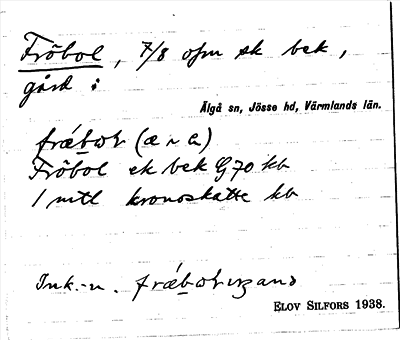 Fröbol, 7/8 ofm sk bek,
gård i
Älgå sn, Jösse hd, Värmlands län.
(æ ~ a)
Fröbol ek bek G 70 kb
1 mtl kronoskatte kb
Ink.-n.
ELOV SILFORS 1938.